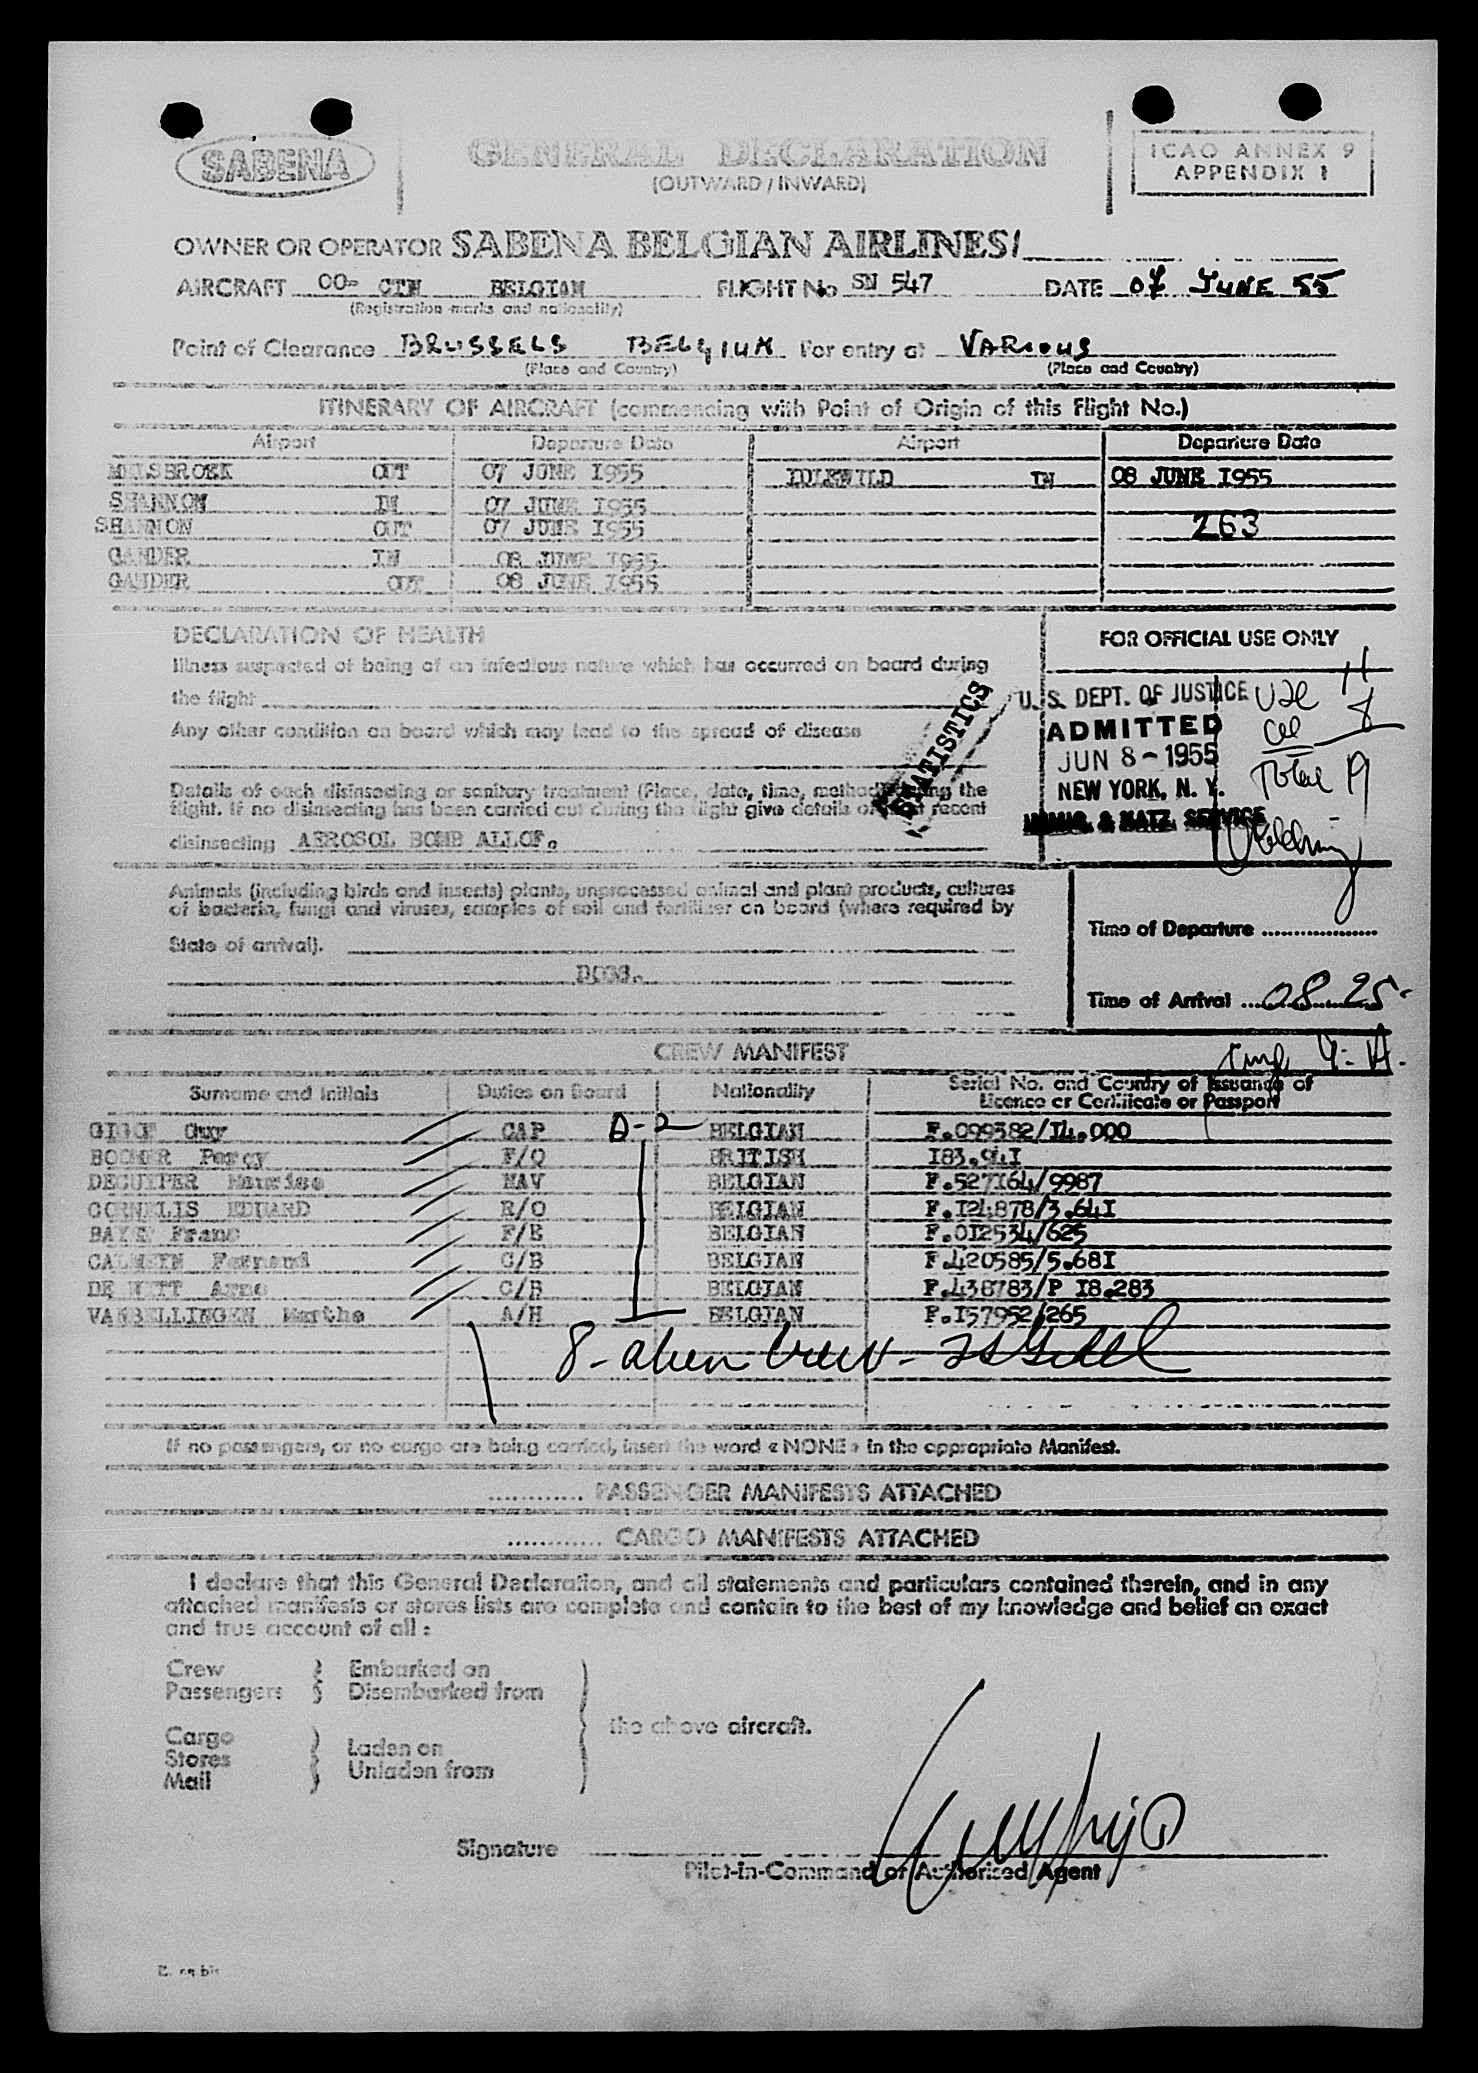 SABENA
GENERAL DECLARATION
(OUTWARD / INWARD)
ICAO ANNEX 9
APPENDIX 1
OWNER OR OPERATOR SABENA BELGIAN AIRLINES/
AIRCRAFT OO- CTN BELGIAN FLIGHT No SN 547 DATE 07 JUNE 55
(Registration marks and nationality)
Point of Clearance BRUSSELS BELGIUM For entry at VARIOUS
(Place and Country) (Place and Country)
ITINERARY OF AIRCRAFT (commencing with Point of Origin of this Flight No.)
Airport Departure Date Airport Departure Date
MELSBROEK OUT 07 JUNE 1955 IDLEWILD IN 08 JUNE 1955
SHANNON IN 07 JUNE 1955
SHANNON OUT 07 JUNE 1955 263
GANDER IN 08 JUNE 1955
GANDER OUT 08 JUNE 1955
DECLARATION OF HEALTH
Illness suspected of being of an infectious nature which has occurred on board during
the flight
Any other condition on board which may lead to the spread of disease
Details of each disinsecting or sanitary treatment (Place, date, time, method) during the
flight. If no disinsecting has been carried out during the flight give details of most recent
disinsecting AEROSOL BOMB ALLOF.
STATISTICS
FOR OFFICIAL USE ONLY
U. S. DEPT. OF JUSTICE
ADMITTED
JUN 8 - 1955
NEW YORK, N. Y.
IMMIG. & NATZ. SERVICE
11
8
Total 19
Animals (including birds and insects) plants, unprocessed animal and plant products, cultures
of bacteria, fungi and viruses, samples of soil and fertilizer on board (where required by
State of arrival).
DOGS.
Time of Departure
Time of Arrival 08 25
CREW MANIFEST
Surname and Initials Duties on Board Nationality Serial No. and Country of Issuance of
Licence or Certificate or Passport
Guy CAP D-2 BELGIAN F.099382/I4.000
BOOMER Percy F/O BRITISH I83.94I
DECUYPER Maurice NAV BELGIAN F.527I64/9987
CORNELIS EDUARD R/O BELGIAN F.I24878/3.64I
Frans F/E BELGIAN F.0I2534/625
CALMEYN Fernand C/B BELGIAN F.420585/5.68I
DE WITT Arno C/B BELGIAN F.438783/P I8.283
VANBELLINGEN Marthe A/H BELGIAN F.I57952/265
8 - alien crew -
If no passengers, or no cargo are being carried, insert the word « NONE » in the appropriate Manifest.
............ PASSENGER MANIFESTS ATTACHED
............ CARGO MANIFESTS ATTACHED
I declare that this General Declaration, and all statements and particulars contained therein, and in any
attached manifests or stores lists are complete and contain to the best of my knowledge and belief an exact
and true account of all :
Crew Embarked on
Passengers Disembarked from
the above aircraft.
Cargo
Stores Laden on
Mail Unladen from
Signature
Pilot-in-Command or Authorised Agent